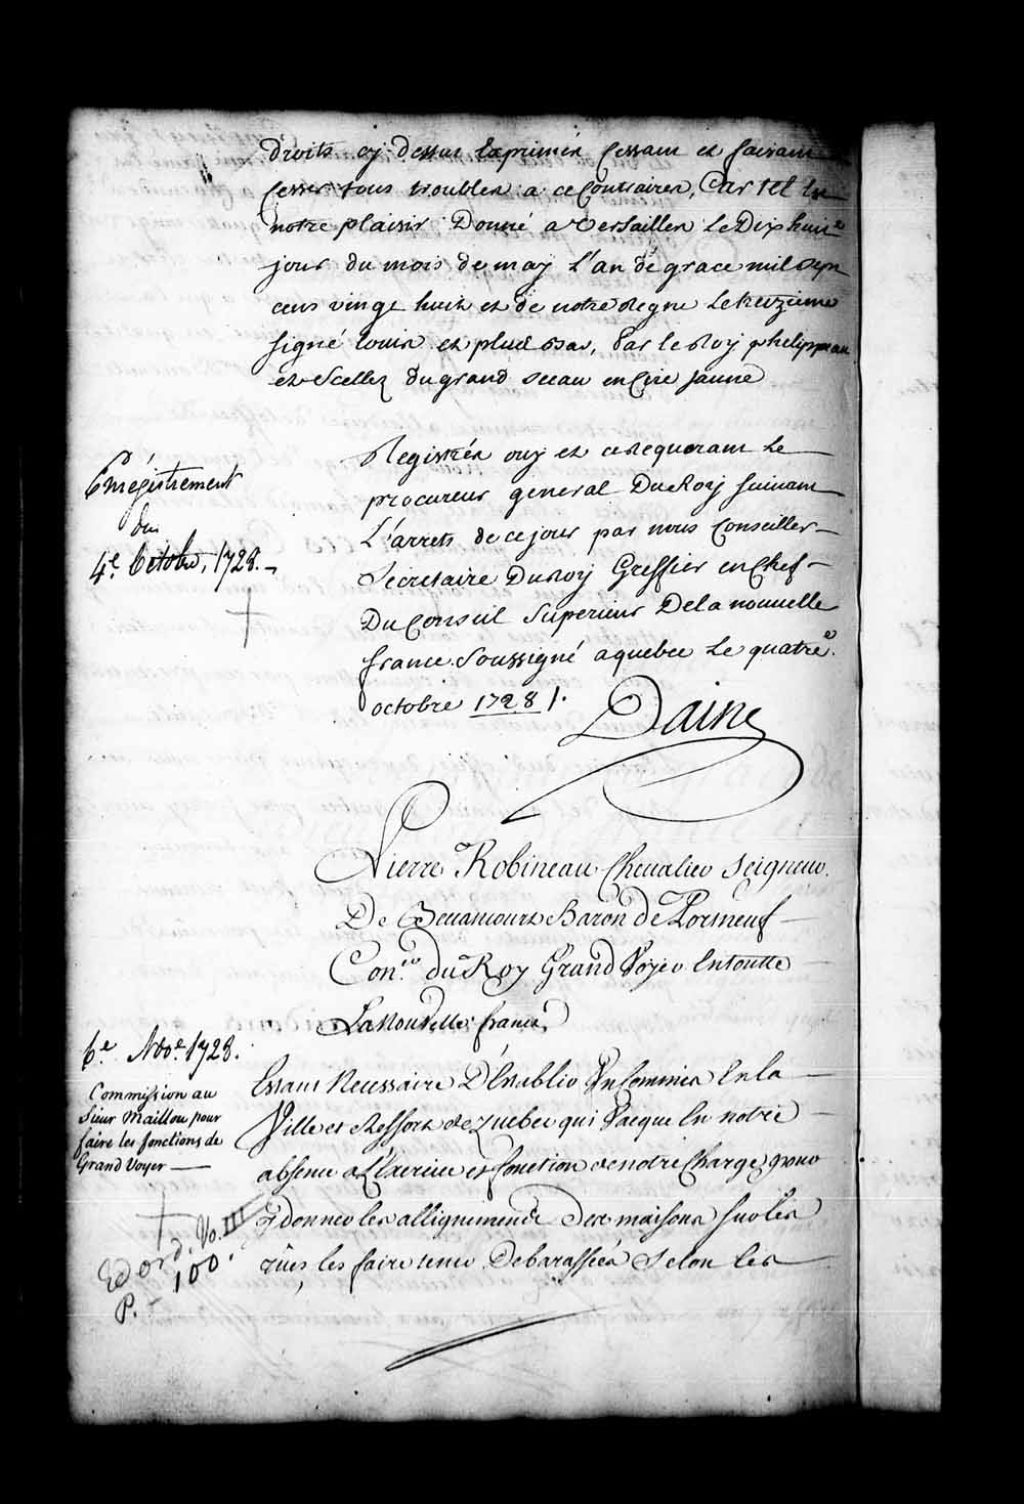 droits cy dessus Exprimés Cessant et faisant
Cesser tous troubles a ce Contraires, Car tel Est
notre plaisir Donné a Versailles Le Dix huite
jour du mois de may L'an de grace mil Sept
cens vingt huit et de notre Regne Le treizieme
signé Louis et plus Bas, Par le Roy phelippeau
et Scellez du grand Sceau en Cire jaune
Enrégistrement
du
4e. Octobre, 1728.
Registrées ouy et ce Requerant Le
procureur general Du Roy suivant
L'arrets de ce jour par nous Conseiller
Secretaire Du Roy Greffier en Chef
Du Conseil Superieur De la nouvelle
france Soussigné a quebec Le quatre.
octobre 1728 /.
Daine
Pierre Robineau Chevalier Seigneur
De Becancourt Baron de Portneuf
Con.er du Roy Grand Voyer En toutte
La Nouvelle france,
6e. Nove. 1728.
Commission au
Sieur Maillou pour
faire les fonctions de
Grand Voyer
Estant Necessaire D'Establir Un Commis En la
Ville et Ressort de Quebec qui Vacque En notre
absence a L'Exercice et fonction de notre Charge pour
donner les allignements Des maisons sur les
rües les faire tenir Debarassées Selon les
Ed. ord. Vo. III
P. 100.